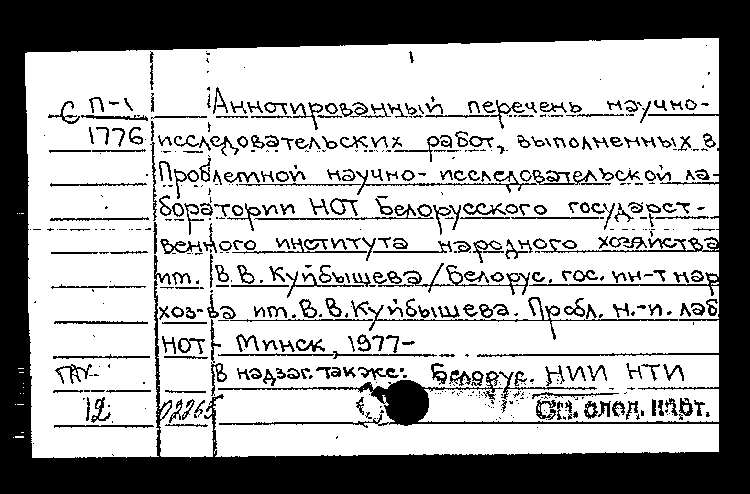 С П-1 Аннотированный перечень научно-
1776 исследовательских работ, выполненных в
Проблемной научно-исследовательской ла-
боратории НОТ Белорусского государст-
венного института народного хозяйства
им. В.В. Куйбышева / Белорус. гос. ин-т нар
хоз-ва им. В.В. Куйбышева. Пробл. н.-и. лаб
НОТ - Минск, 1977-
В надзаг. также: Белорус. НИИ НТИ
12 02265 См. след. карт.